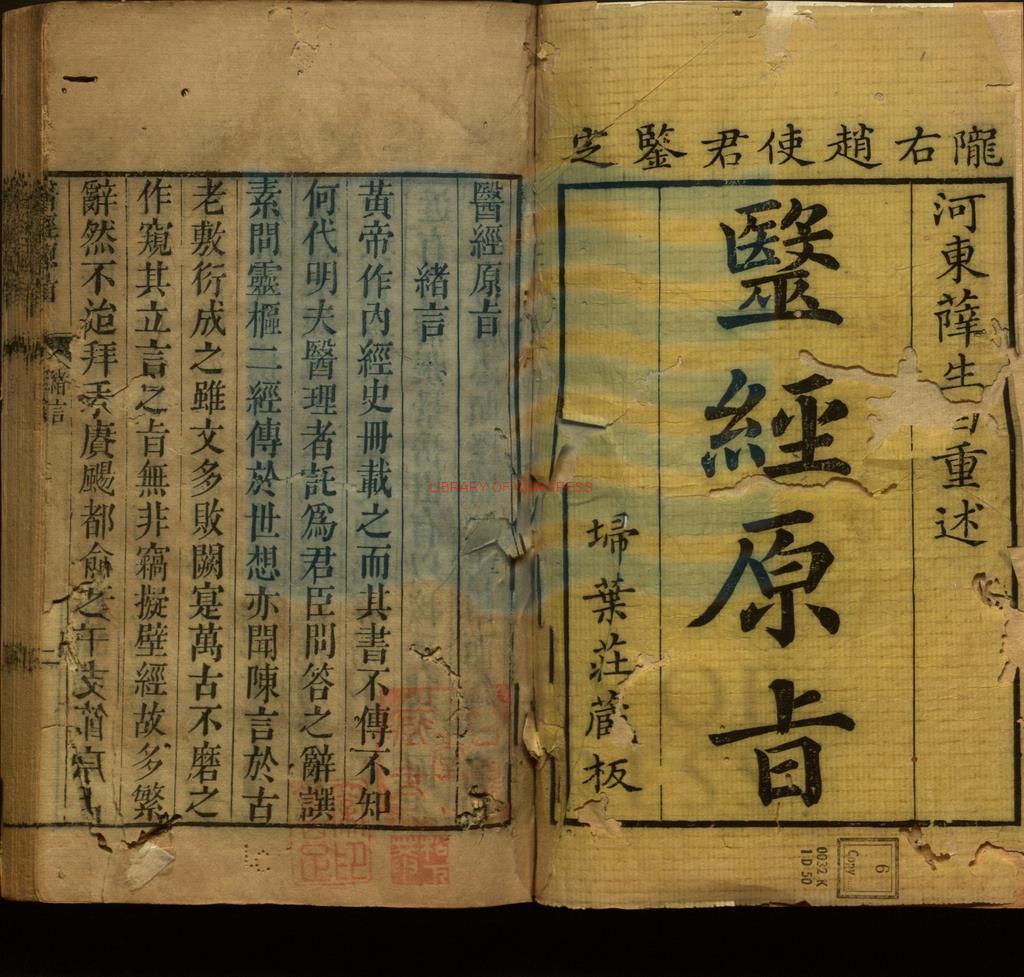 隴右趙使君鑒定
河東薛生白重述
醫經原旨
埽葉莊藏板
醫經原旨
緒言
黃帝作內經史冊載之而其書不傳不知
何代明夫醫理者託為君臣問答之辭譔
素問靈樞二經傳於世想亦聞陳言於古
老敷衍成之雖文多敗闕寔萬古不磨之
作窺其立言之旨無非竊擬壁經故多繁
辭然不迨拜手賡颺都俞之
醫經原旨
緒言
LIBRARY OF CONGRESS
6
Copy
0032.K
1 D 50